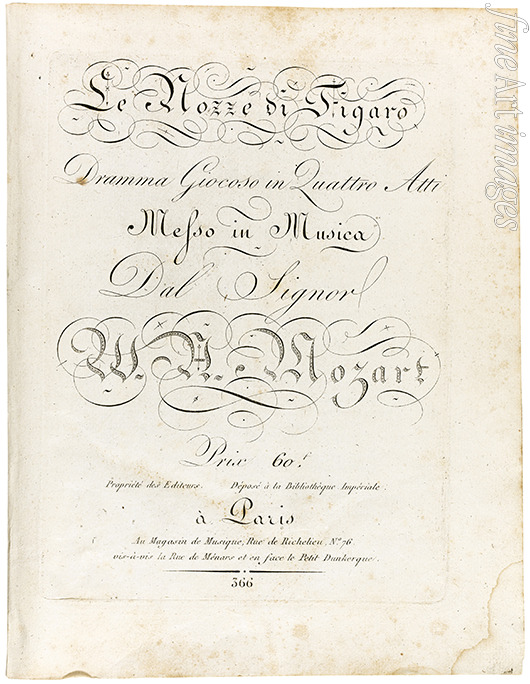 Le Nozze di Figaro
Dramma Giocoso in Quattro Atti
Messo in Musica
Dal Signor
W. A. Mozart
Prix 60.f
Propriété des Editeurs. Déposé à la Bibliothèque Impériale.
à Paris
Au Magasin de Musique, Rue de Richelieu, N.º 76
vis-à-vis la Rue de Ménars et en face le Petit Dunkerque.
366
fineArtimages